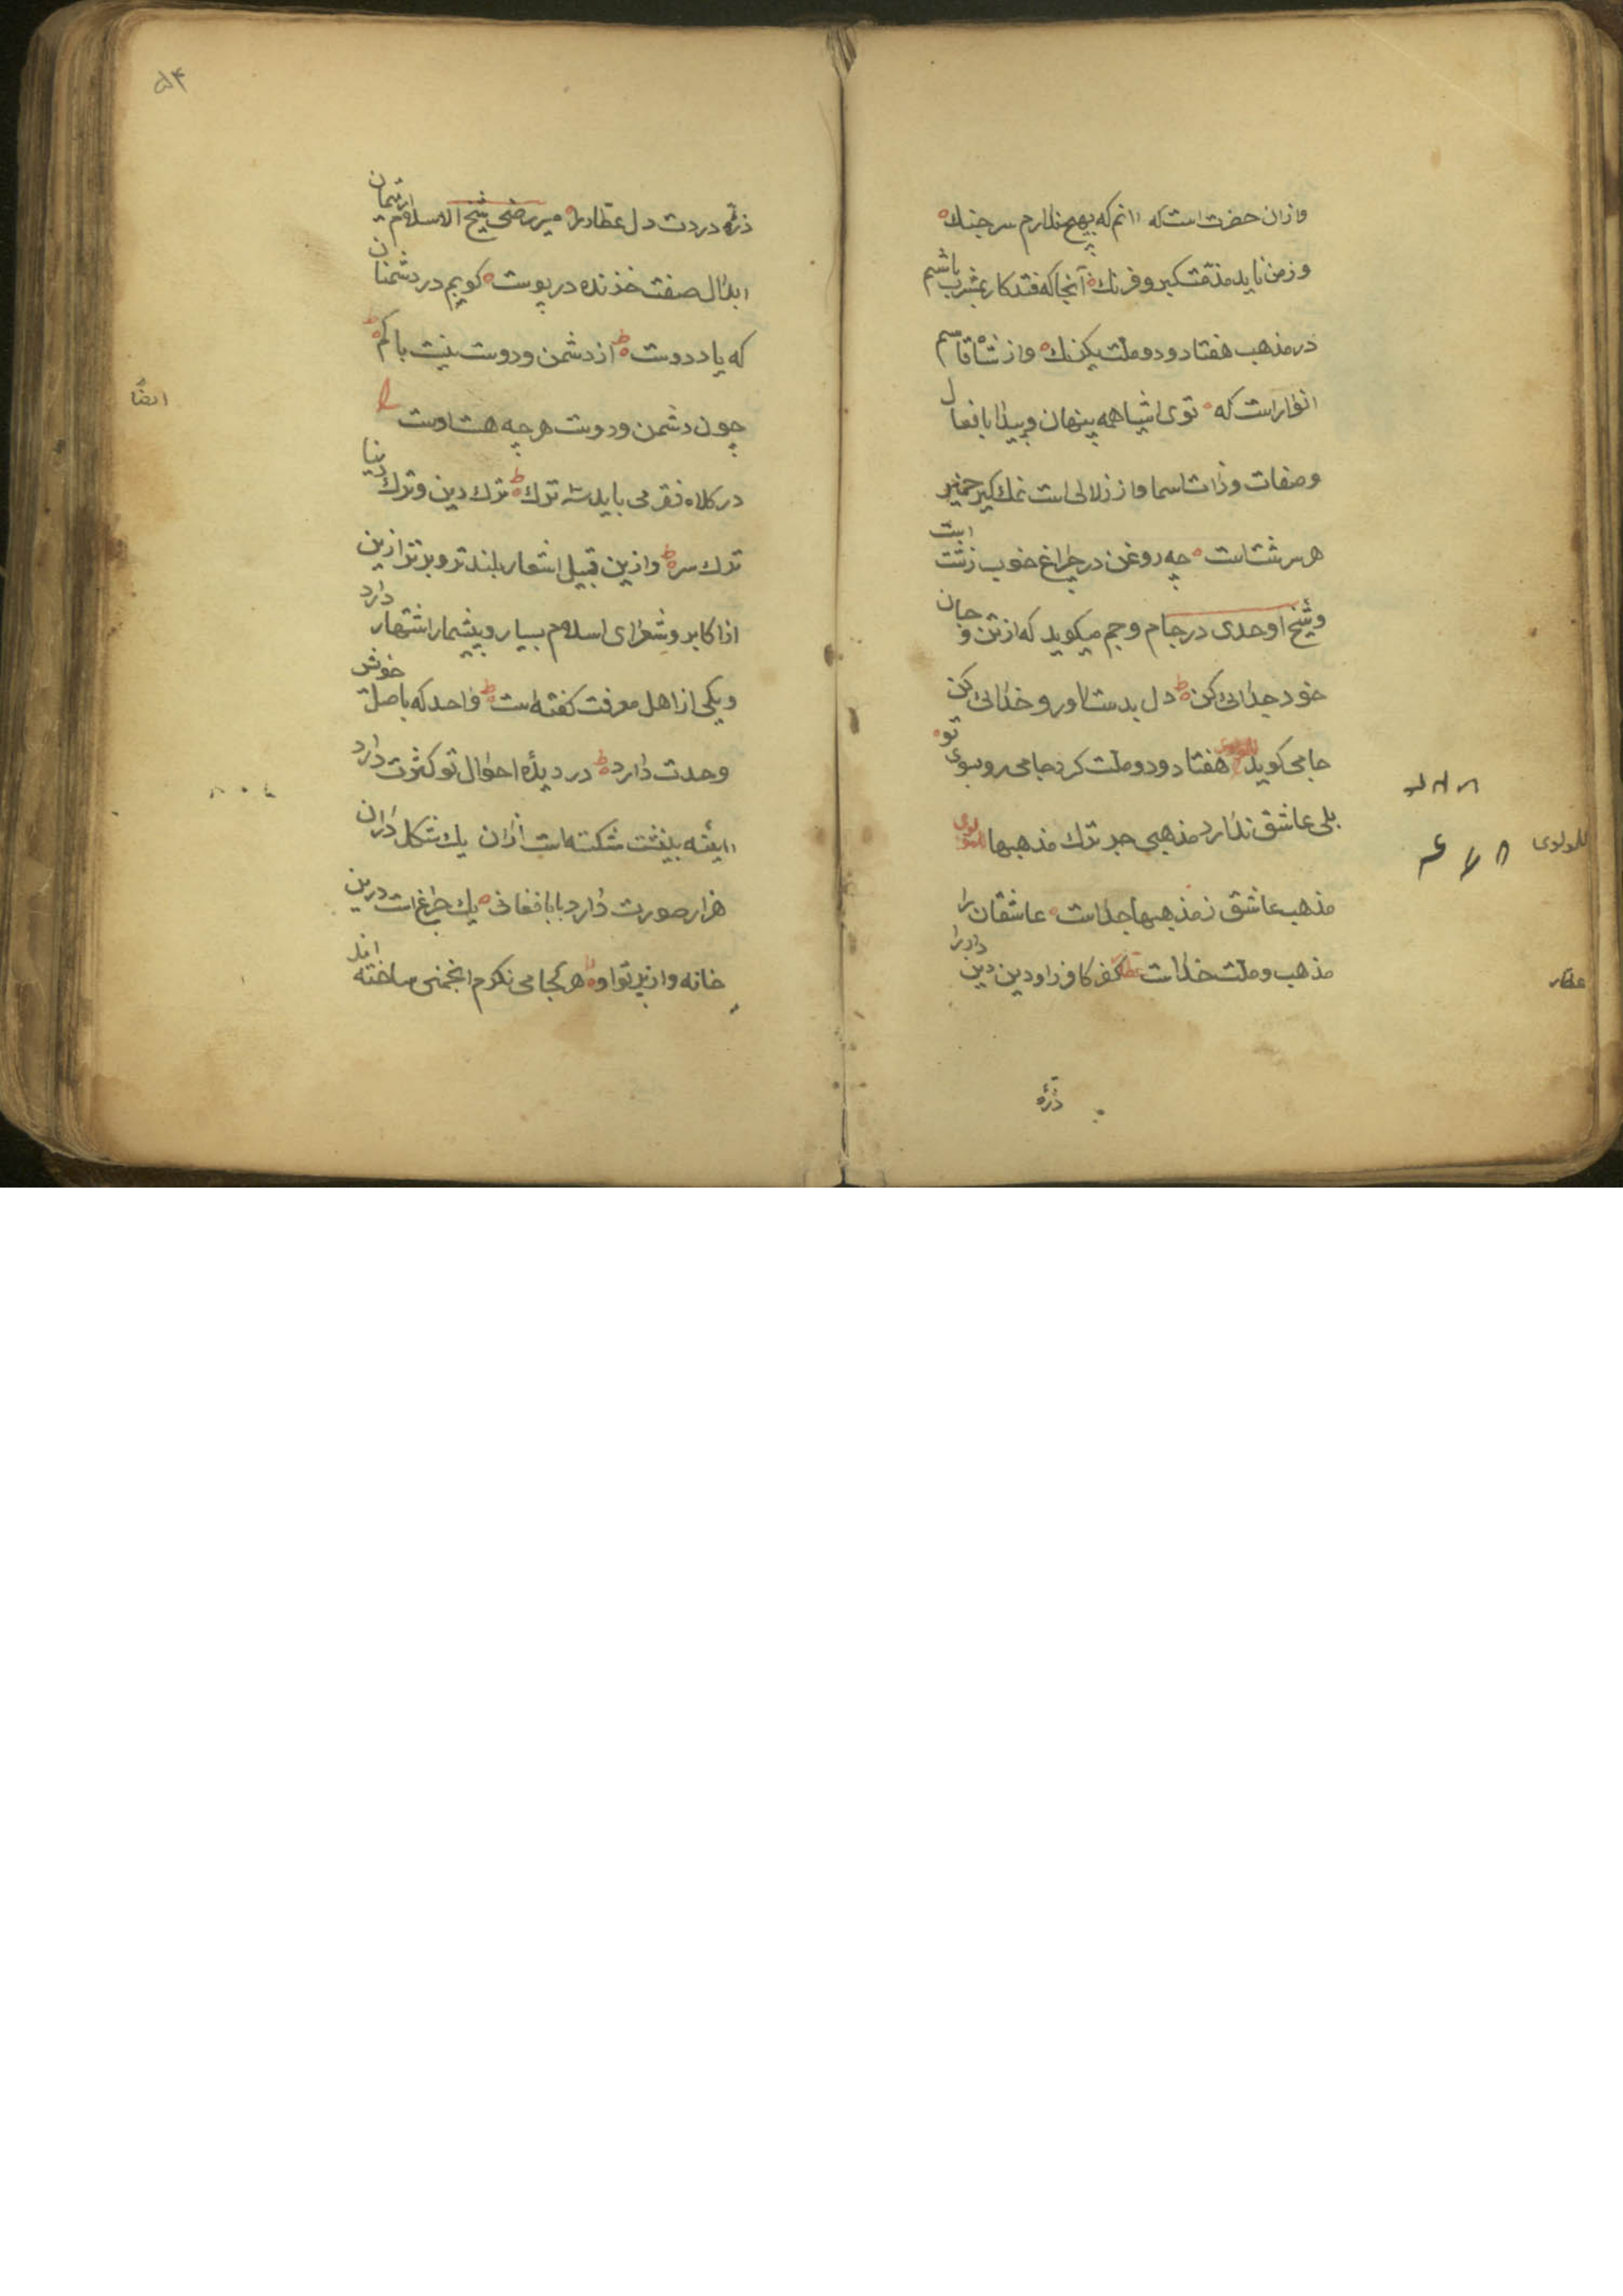 وازان حضرت است که دانم که بهیچ ندارم سر جنك
وزمن ناید مذمت کبر و فرنك آنجا که فتد کار بمشرب باشم
در مذهب هفتاد و دو ملت یکرنك واز شاه قاسم
انوار است که توی اشیا همه پنهان و پیدا با فعال
وصفات وذات اسما واز زلالی است نمك کیر خمیر
هر سرشتست چه روغن در چراغ خوب زشتت است
وشیخ اوحدی در جام وجم میکوید که از تن و جان
خود جدائی کن دل بدست آور و خدائی کن
جامی کوید هفتاد و دو ملت کرد جامی رو بسوی تو
بلی عاشق ندارد مذهبی جز ترك مذهبها للمولوی
مذهب عاشق ز مذهبها جداست عاشقان را
مذهب و ملت خداست عطار کفر کافر را و دین دین دار را
ذرّه
للمولوی
عطار
۵۴
ذرّه دردت دل عطار را میر رضی شیخ الاسلام ارتیمان
ابدال صفت خزنده در پوست کویم در دشمنان
که یا در دوست از دشمن و دوست نیست باکم
چون دشمن و دوست هر چه هست اوست
در کلاه فقر می باید سه ترك ترك دین و ترك دنیا
ترك سر وازین قبیل اشعار بلند تر و برتر ازین
از اکابر و شعرای اسلام بسیار و بیشمار اشتهار دارد
ویکی از اهل معرفت کفته است واحد که باصل خوش
وحدت دارد در دیدۀ احوال تو کثرت دارد
شکسته است ازان یك شکل دران
هزار صورت دارد بابا فغانی یك چراغ است درین
خانه واز پرتو او هر کجا می نکرم انجمنی ساخته اند
ایضًا